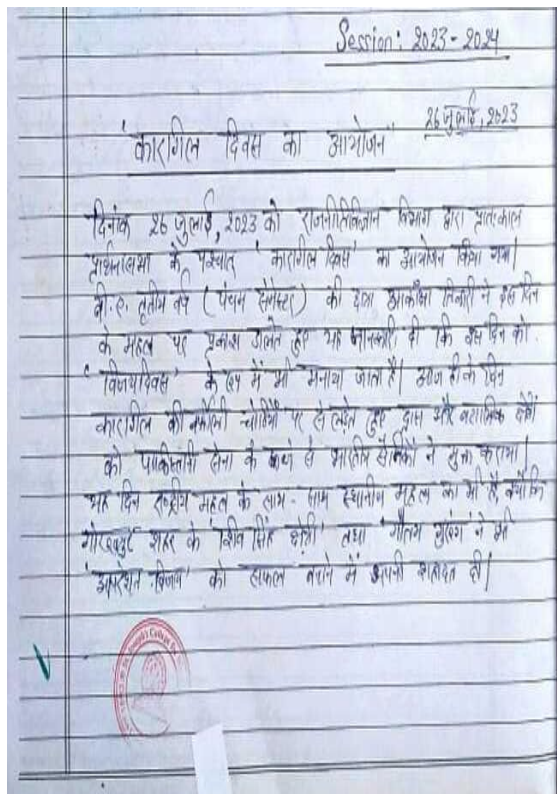 Session: 2023-2024
26 जुलाई, 2023
'कारगिल दिवस का आयोजन'
दिनांक 26 जुलाई, 2023 को राजनीतिविज्ञान विभाग द्वारा प्रातःकाल
प्रार्थनासभा के पश्चात् 'कारगिल दिवस' का आयोजन किया गया।
बी.ए. तृतीय वर्ष (पंचम सेमेस्टर) की छात्रा आकांक्षा तिवारी ने इस दिन
के महत्व पर प्रकाश डालते हुए यह जानकारी दी कि इस दिन को
'विजयदिवस' के रूप में भी मनाया जाता है। आज ही के दिन
कारगिल की बर्फीली चोटियों पर से लड़ते हुए द्रास और बटालिक क्षेत्रों
को पाकिस्तानी सेना के कब्जे से भारतीय सैनिकों ने मुक्त कराया।
यह दिन राष्ट्रीय महत्व के साथ-साथ स्थानीय महत्व का भी है, क्योंकि
गोरखपुर शहर के 'शिव सिंह क्षेत्री' तथा 'गौतम गुरुंग' ने भी
'आपरेशन विजय' को सफल बनाने में अपनी शहादत दी।